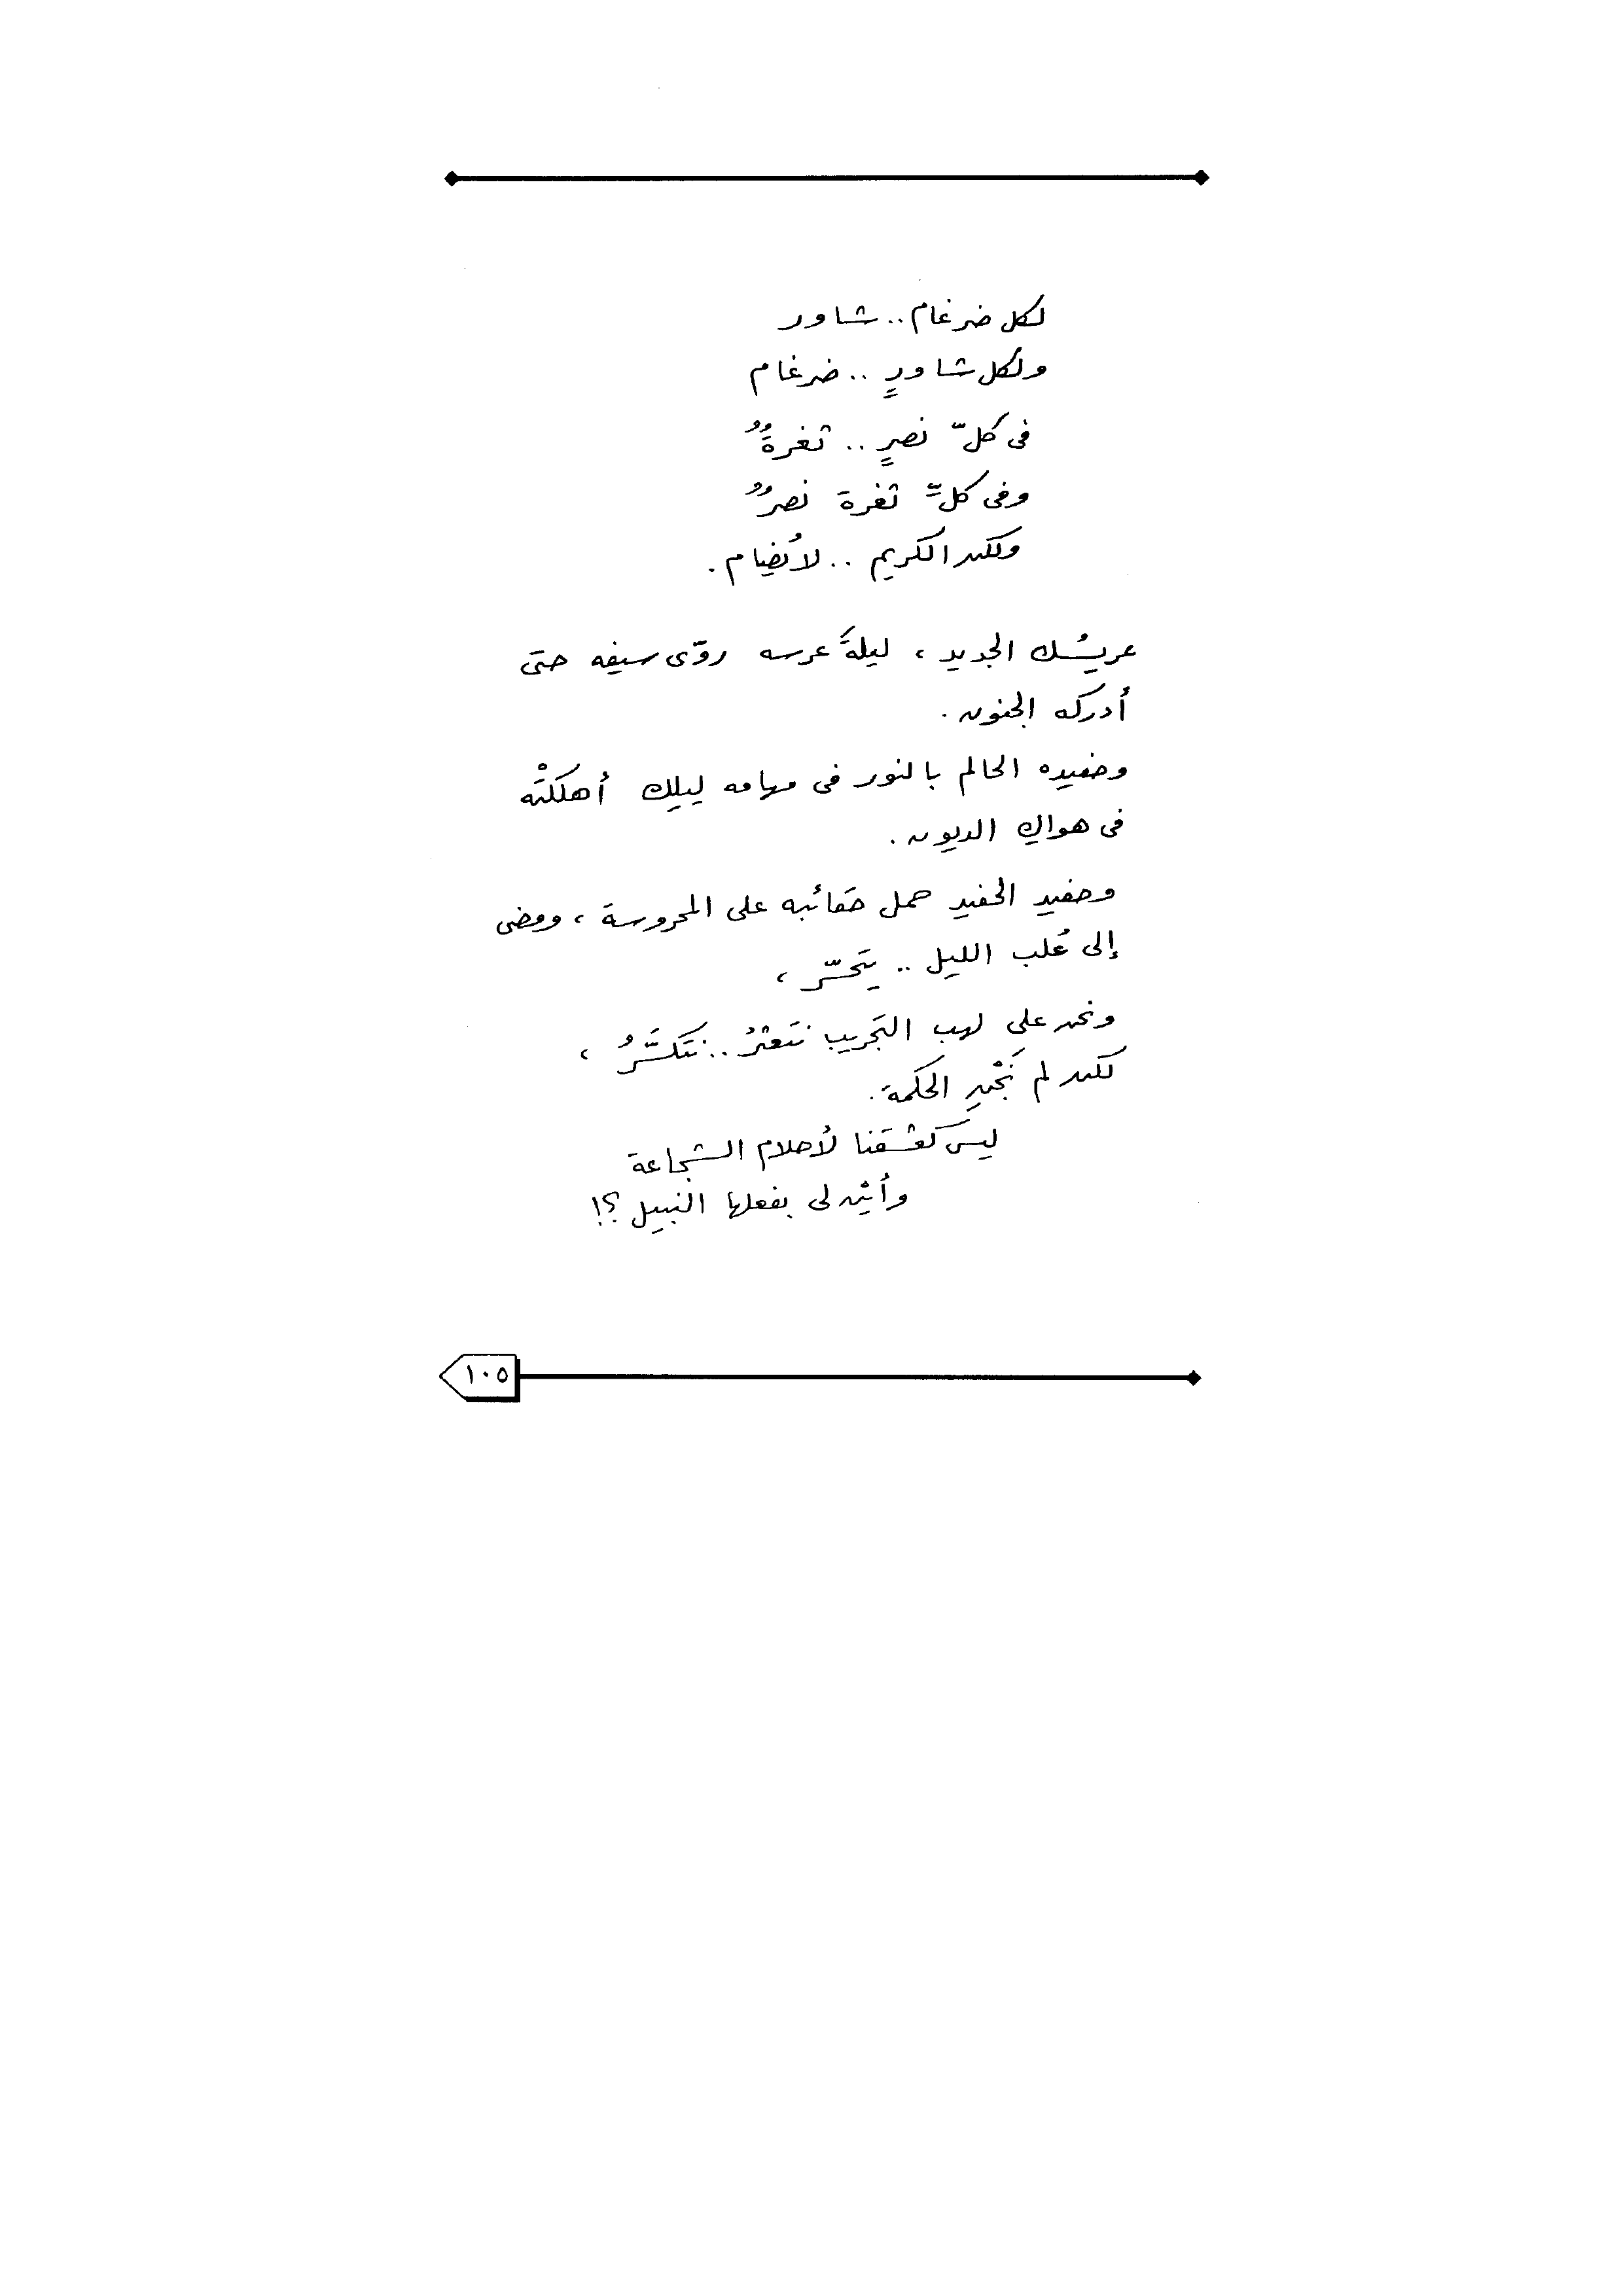 لكل ضرغام .. شاور
ولكل شاورٍ .. ضرغام
فى كلّ نصرٍ .. ثغرةٌ
وفى كلّ ثغرة نصرٌ
ولكن الكريم .. لا يُضام .
عريسُك الجديد ، ليلةَ عرسه روّى سيفه حتى
أدركه الجنون .
وحفيده الحالم بالنور فى مهامه ليلِك أهلكتْه
فى هواكِ الديون .
وحفيد الحفيد حمل حقائبه على المحروسة ، ومضى
إلى عُلب الليل .. يتَحسّر ،
ونحن على لهب التجريب نتعثرُ .. نتَكسَّرُ ،
لكن لم نَجْنِ الحكمة .
ليسَ كعشقنا لأحلام الشجاعة
وأين لى بفعلها النبيل ؟!
١٠٥